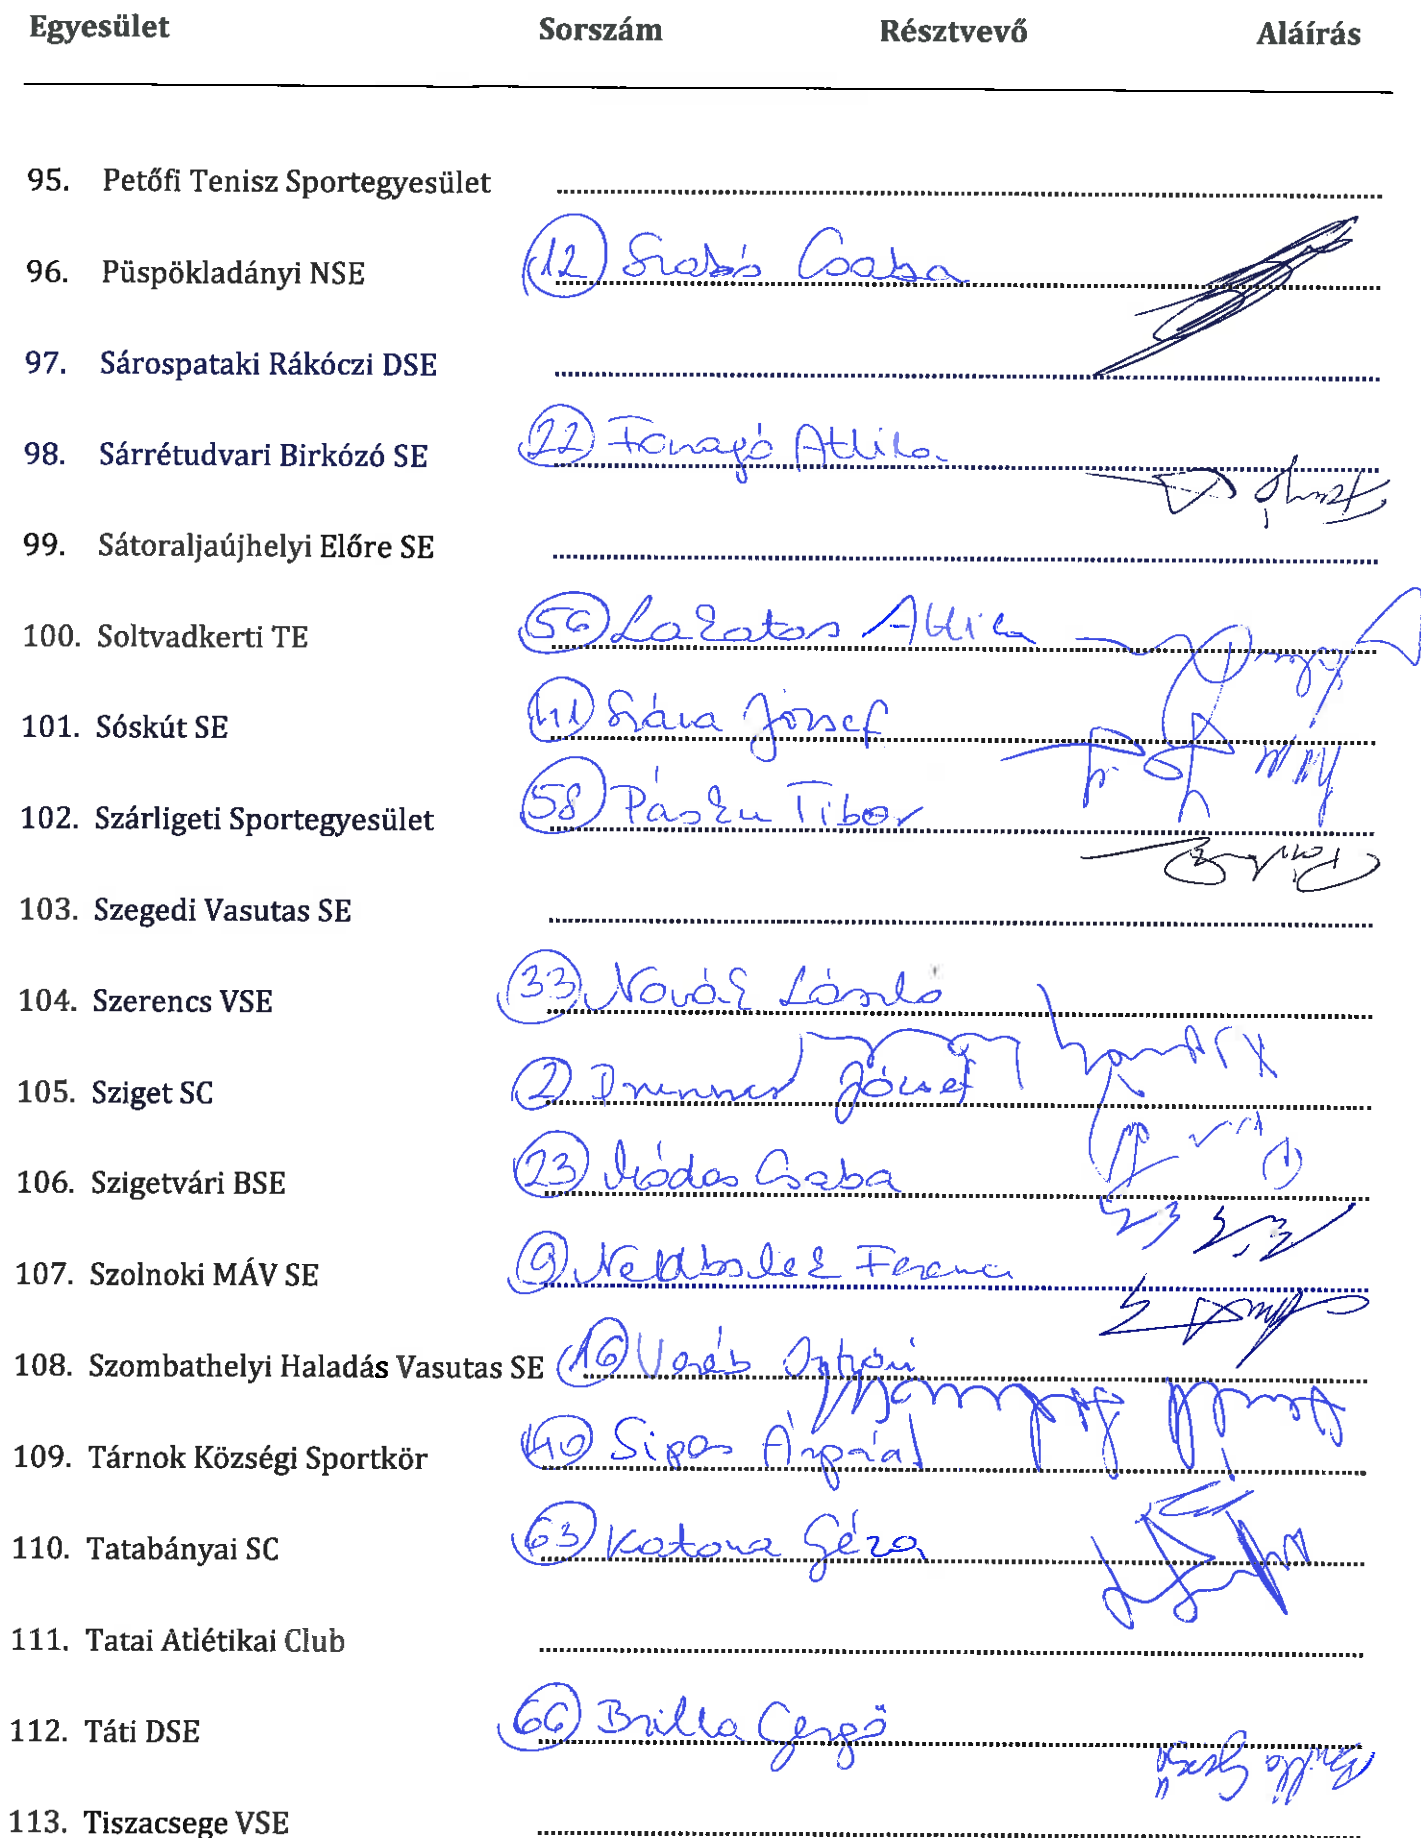 Egyesület Sorszám Résztvevő Aláírás
95. Petőfi Tenisz Sportegyesület
96. Püspökladányi NSE 12 Szabó Csaba
97. Sárospataki Rákóczi DSE
98. Sárrétudvari Birkózó SE 22 Attila
99. Sátoraljaújhelyi Előre SE
100. Soltvadkerti TE 56 Lakatos Attila
101. Sóskút SE 41 József
102. Szárligeti Sportegyesület 58 Pásku Tibor
103. Szegedi Vasutas SE
104. Szerencs VSE 33 Novák László
105. Sziget SC 2 József
106. Szigetvári BSE 23 Módos Csaba
107. Szolnoki MÁV SE 9 Ferenc
108. Szombathelyi Haladás Vasutas SE 16 Veréb
109. Tárnok Községi Sportkör 40 Sipos Árpád
110. Tatabányai SC 63 Katona Géza
111. Tatai Atlétikai Club
112. Táti DSE 66 Brilla Gergő
Brilla Gergő
113. Tiszacsege VSE